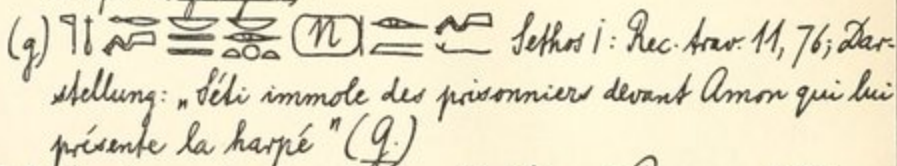 (g) 𓊹𓄤 (n) Sethos I: Rec. trav. 11, 76; Dar-
stellung: „Séti immole des prisonniers devant Amon qui lui
présente la harpé" (G.)